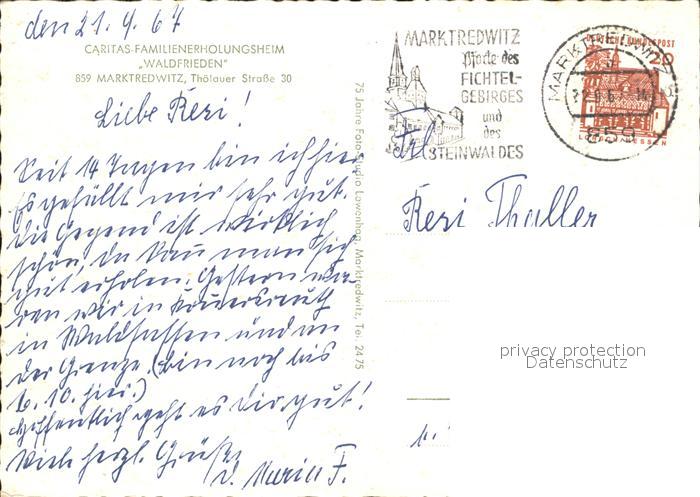 den 21. 9. 67
CARITAS-FAMILIENERHOLUNGSHEIM
„WALDFRIEDEN"
859 MARKTREDWITZ, Thölauer Straße 30
Liebe Resi!
Seit 14 Tagen bin ich hier.
Es gefällt mir sehr gut.
Die Gegend ist wirklich
schön, da kann man sich
gut erholen. Gestern wa-
ren wir in
in Waldsassen und an
der Grenze. (bin noch bis
6. 10. hier.)
Hoffentlich geht es Dir gut!
Viele herzl. Grüße
v. Maria F.
75 Jahre Foto-Studio Lowenhag, Marktredwitz, Tel. 2475
MARKTREDWITZ
Pforte des
FICHTEL-
GEBIRGES
und
des
STEINWALDES
MARKTREDWITZ
859
DEUTSCHE BUNDESPOST
20
Frl.
Resi Thaller
privacy protection
Datenschutz